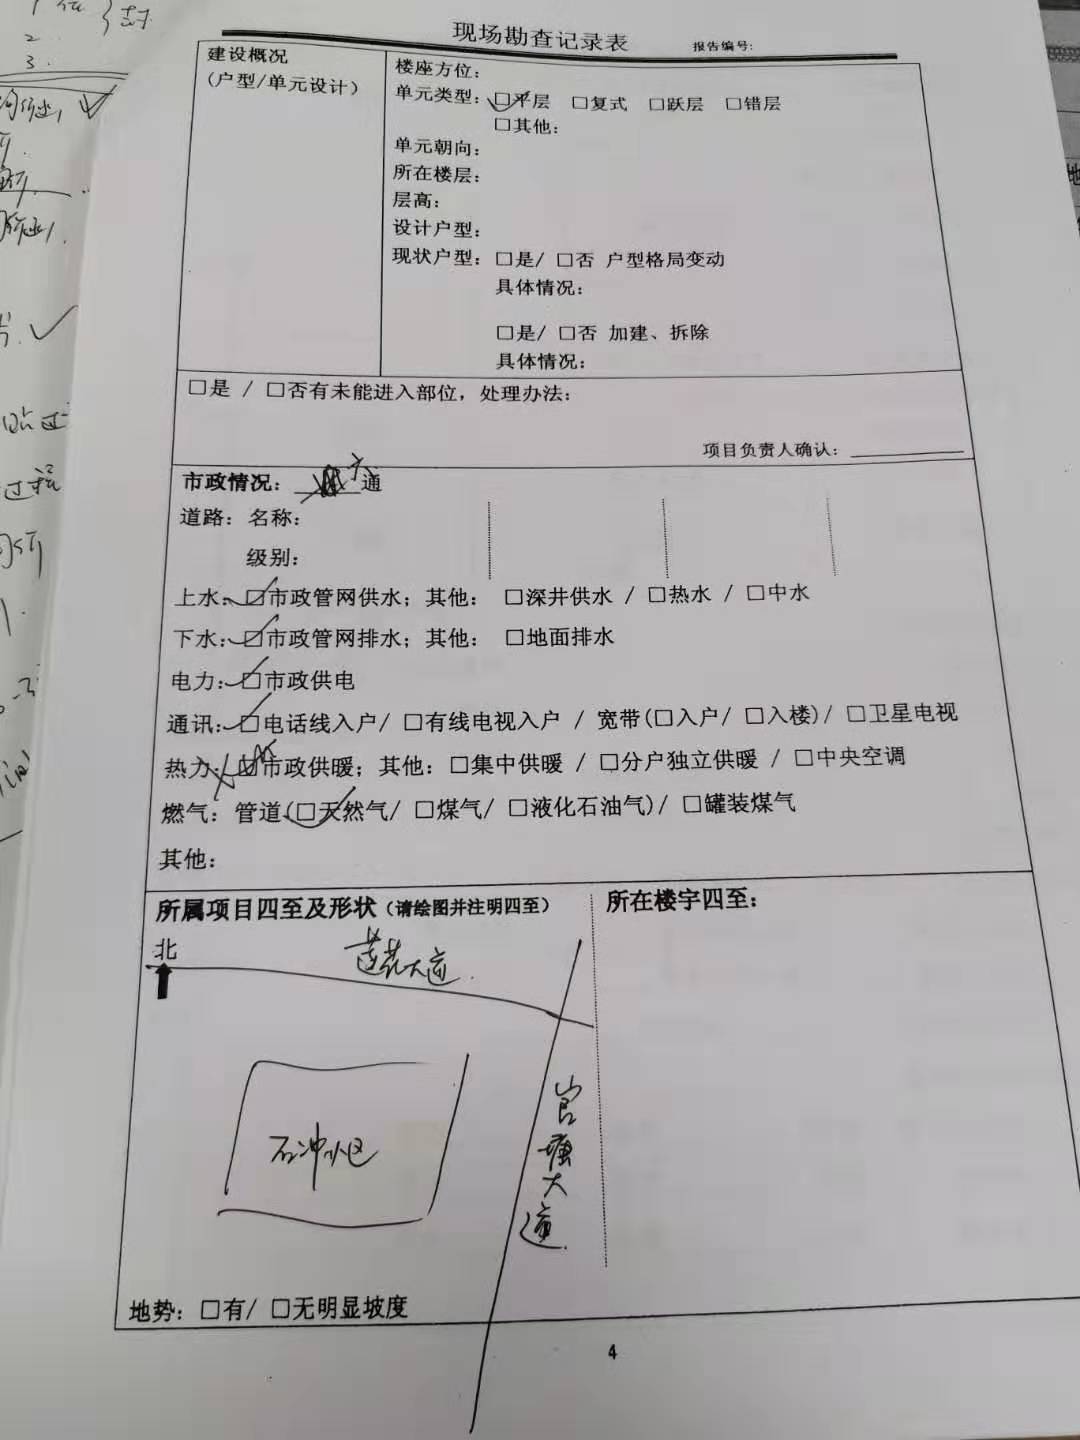 现场勘查记录表 报告编号:
建设概况
(户型/单元设计)
楼座方位:
单元类型: ☑平层 □复式 □跃层 □错层
□其他:
单元朝向:
所在楼层:
层高:
设计户型:
现状户型: □是/ □否 户型格局变动
具体情况:
□是/ □否 加建、拆除
具体情况:
□是 / □否有未能进入部位, 处理办法:
项目负责人确认:
市政情况: 六通
道路: 名称:
级别:
上水: ☑市政管网供水; 其他: □深井供水 / □热水 / □中水
下水: ☑市政管网排水; 其他: □地面排水
电力: ☑市政供电
通讯: ☑电话线入户/ □有线电视入户 / 宽带(□入户/ □入楼)/ □卫星电视
热力: □市政供暖; 其他: □集中供暖 / □分户独立供暖 / □中央空调
燃气: 管道(☑天然气/ □煤气/ □液化石油气)/ □罐装煤气
其他:
所属项目四至及形状(请绘图并注明四至)
所在楼宇四至:
北
莲花大道
石冲小区
官塘大道
地势: □有/ □无明显坡度
4